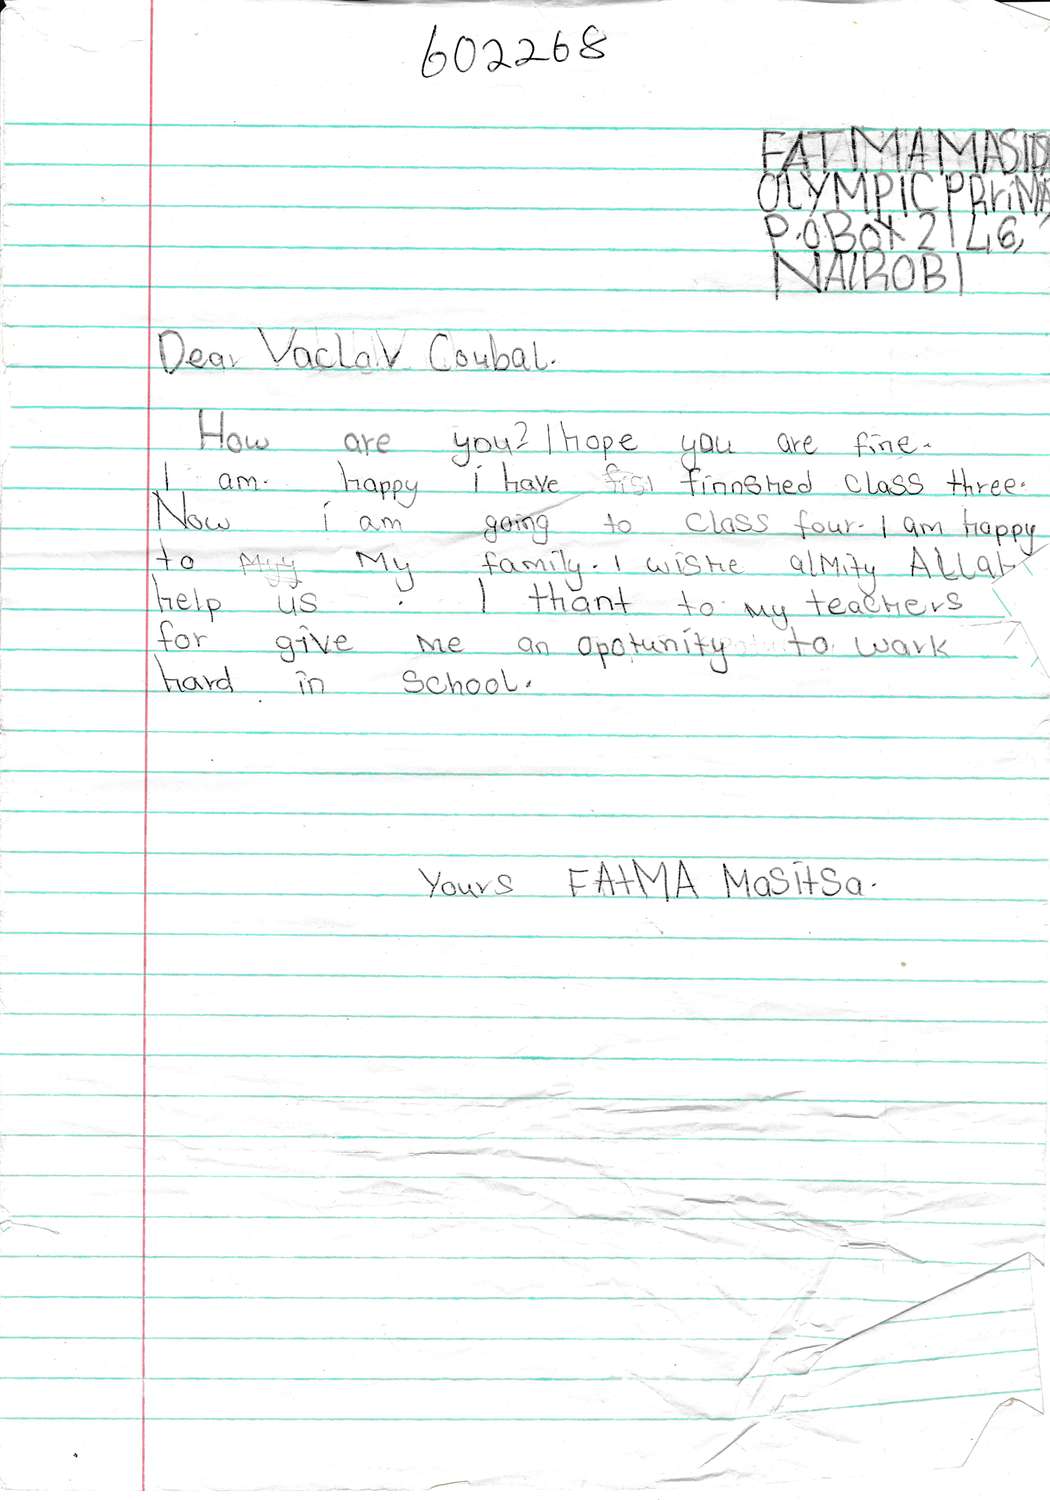 602268
FATIMA MASID
OLYMPIC PRriMA
P.O Box 2146,
NAIROBI
Dear Vaclav Coubal.
How are you? I hope you are fine.
I am. happy i have fisı finnshed class three.
Now i am going to class four. I am happy
to my family. I wishe almity ALLah
help us . I thant to my teachers
for give me an opotunity to wark
hard in school.
Yours FAtMA MaSitSa.